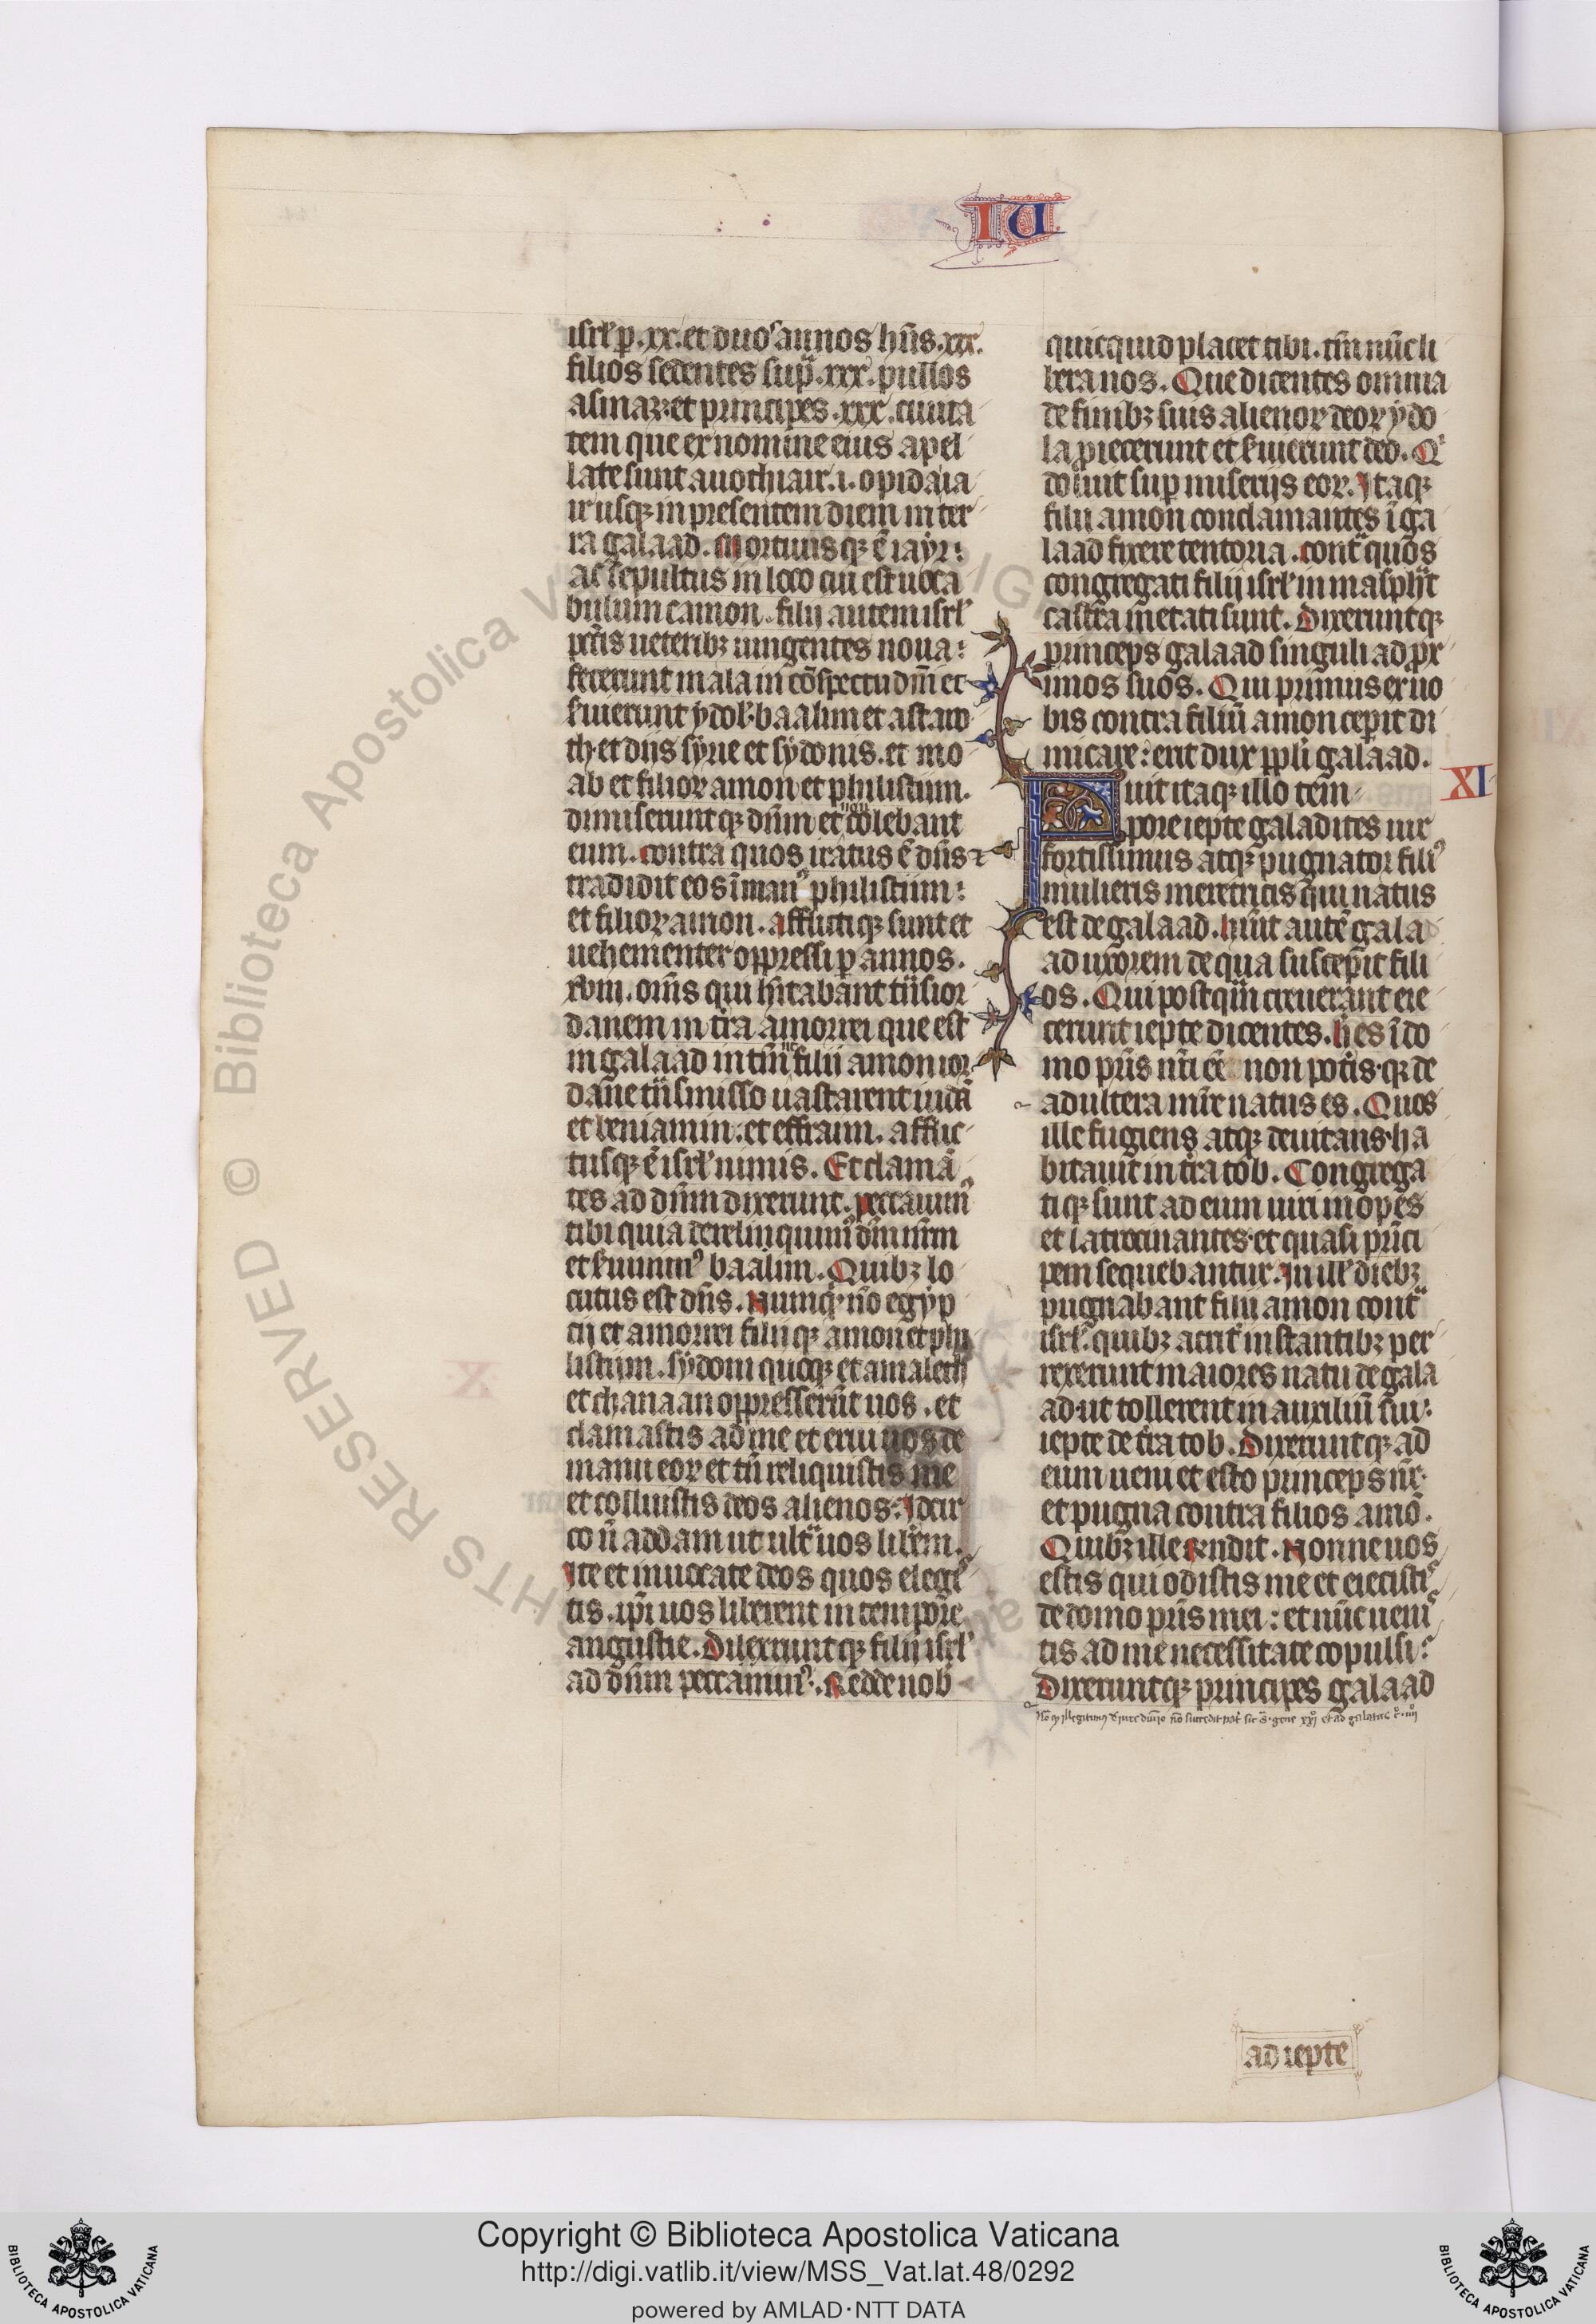 IU
isrł p .xx. et duos annos hñs .xxx.
filios sedentes sup .xxx. pullos
asinaꝝ et principes .xxx. ciuita
tem que ex nomine eius apel
late sunt auothiair .i. opida ia
ir usqꝫ in presentem diem in ter
ra galaad. Mortuusqꝫ ē iayr:
ac sepultus in loco cui est uoca
bulum camon. filij autem isrł
pctis ueteribꝫ iungentes noua:
fecerunt mala in cōspectu dn̄i et
seruierunt ydol. baalim et astaro
th. et diis syrie et sydonis. et mo
ab et filioꝝ amon et philistiim.
dimiseruntqꝫ dn̄m et non colebant
eum. contra quos iratus ē dn̄s ⁊
tradidit eos ī manꝰ philistiim:
et filioꝝ amon. afflictiqꝫ sunt et
uehementer oppressi p annos.
xviii. oms qui hītabant tn̄s ior
danem in tr̄a amorrei que est
in galaad in tm̄ ut filii amon ior
dane tn̄smisso uastarent iudā
et beniamin. et effraim. afflic
tusqꝫ ē isrł nimis. Et clamā
tes ad dn̄m dixerunt. peccauimꝰ
tibi quia derelinquimꝰ dn̄m nr̄m
et seruiuimꝰ baalim. Quibꝫ lo
cutus est dn̄s. Numqͥ nō egyp
tij et amorrei filiiqꝫ amon et phi
listiim. sydoni quoqꝫ et amalech
et chanaan oppresserūt uos. et
clamastis ad me et erui uos de
manu eoꝝ et tn̄ reliquistis me
et coluistis deos alienos. Idcir
co n̄ addam ut ultͣ uos librem.
Ite et inuocate deos quos elegis
tis. ip̄i uos liberent in tempore
angustie. Dixeruntqꝫ filij isrł
ad dn̄m peccauimꝰ. Redde nob
quicquid placet tibi. tm̄ nūc li
bera nos. Que dicentes omnia
de finibꝫ suis alienoꝝ deoꝝ ydo
la proiecerunt et seruierunt deo. Qͥ
doluit sup miserijs eoꝝ. Itaqꝫ
filij amon conclamantes ī ga
laad fixere tentoria. contͣ quos
congregati filij isrł in masphat
castra metati sunt. Dixeruntqꝫ
princeps galaad singuli ad prox
imos suos. Qui primus ex uo
bis contra filiū amon cepit di
micare: erit dux ppli galaad.
XI
Fuit itaqꝫ illo tem
pore iepte galadites uir
fortissimus atqꝫ pugnator filiꝰ
mulieris meretricis qui natus
est de galaad. hūit autē gala
ad uxorem de qua suscepit fili
os. Qui postqͣm creuerant eie
cerunt iepte dicentes. heres ī do
mo pr̄is nr̄i eē non potis. qꝫ de
adultera mr̄e natus es. Quos
ille fugiens atqꝫ deuitans. ha
bitauit in tr̄a tob. Congrega
tiqꝫ sunt ad eum uiri inopes
et latrocinantes. et quasi prīci
pem sequebantur. In ill diebꝫ
pugnabant filij amon contͣ
isrł. quibꝫ acrit instantibꝫ per
rexerunt maiores natu de gala
ad. ut tollerent in auxiliū sui:
iepte de tr̄a tob. Dixeruntqꝫ ad
eum ueni et esto princeps nr̄.
et pugna contra filios amō.
Quibꝫ ille Rn̄dit. Nonne uos
estis qui odistis me et eiecistis
de domo pr̄is mei: et nūc uenis
tis ad me necessitate copulsi:
Dixeruntqꝫ principes galaad
ad iepte
Copyright © Biblioteca Apostolica Vaticana
http://digi.vatlib.it/view/MSS_Vat.lat.48/0292
powered by AMLAD·NTT DATA